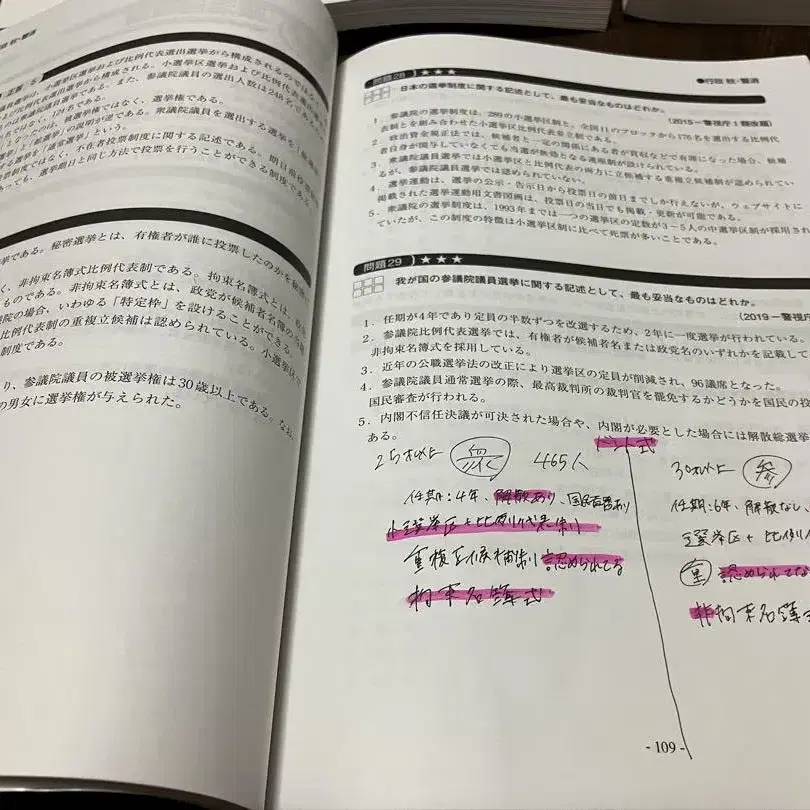 定数 5
議員選挙は、小選挙区選挙および比例代表選出選挙から構成されるのではな
比例代表選出選挙から構成される。小選挙区選挙および比例代表選出議
のは衆議院議員選挙である。また、参議院議員の選出人数は248名であり、
のではなく、1カ月である。
となったのは、被選挙権ではなく、選挙権である。
」と「総選挙」の説明が逆である。衆議院議員を選出する選挙を「総選
挙を「通常選挙」という。
投票制度ではなく、不在者投票制度に関する記述である。期日前投票制
あっても、選挙期日と同じ方法で投票を行うことができる制度である
挙である。秘密選挙とは、有権者が誰に投票したのかを秘密
く、非拘束名簿式比例代表制である。拘束名簿式とは、政
ものである。非拘束名簿式とは、政党が候補者名簿の当選
院の場合、いわゆる「特定枠」を設けることができる。
比例代表制の重複立候補は認められている。小選挙区で
制度である。
り、参議院議員の被選挙権は30歳以上である。なお、
の男女に選挙権が与えられた。
●行政 税・警消
問題28 ★★★
日本の選挙制度に関する記述として、最も妥当なものはどれか。
(2015-警視庁Ⅰ類改題)
1. 参議院の選挙制度は、289の小選挙区制と、全国11のブロックから176名を選出する比例代
表制とを組み合わせた小選挙区比例代表並立制である。
2. 政治資金規正法では、候補者と一定の関係にある者が買収などで有罪になった場合、候補
者自身が関与していなくても当選が無効となる連座制が設けられている。
3. 衆議院議員選挙では小選挙区と比例代表の両方に立候補する重複立候補制が認められてい
るが、参議院議員選挙では認められていない。
4. 選挙運動は、選挙の公示・告示日から投票日の前日までしか行えないが、ウェブサイトに
掲載された選挙運動用文書図画は、投票日の当日でも掲載・更新が可能である。
5. 衆議院の選挙制度は、1993年までは一つの選挙区の定数が3~5人の中選挙区制が採用され
ていたが、この制度の特徴は小選挙区制に比べて死票が多いことである。
問題29 ★★★
我が国の参議院議員選挙に関する記述として、最も妥当なものはどれか。
(2019-警視庁
1. 任期が4年であり定員の半数ずつを改選するため、2年に一度選挙が行われている。
2. 参議院比例代表選挙では、有権者が候補者名または政党名のいずれかを記載して
非拘束名簿式を採用している。
3. 近年の公職選挙法の改正により選挙区の定員が削減され、96議席となった。
4. 参議院議員通常選挙の際、最高裁判所の裁判官を罷免するかどうかを国民の投
国民審査が行われる。
5. 内閣不信任決議が可決された場合や、内閣が必要とした場合には解散総選挙
ある。
ドント式
25才以上 衆 465人
任期:4年、解散あり、国民審査あり
小選挙区+比例代表制
重複立候補制 認められてる
拘束名簿式
30才以上 参
任期:6年、解散なし、
選挙区+比例代
重 認められてな
非拘束名簿式
-109-